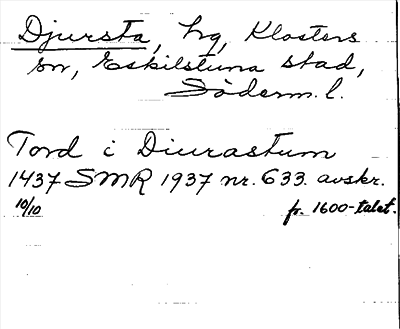 Djursta, hg, Klosters
sn, Eskilstuna stad,
Söderm. l.
Tord i Diurastum
1437 SMR 1937 nr. 633. avskr.
10/10 fr. 1600-talet.